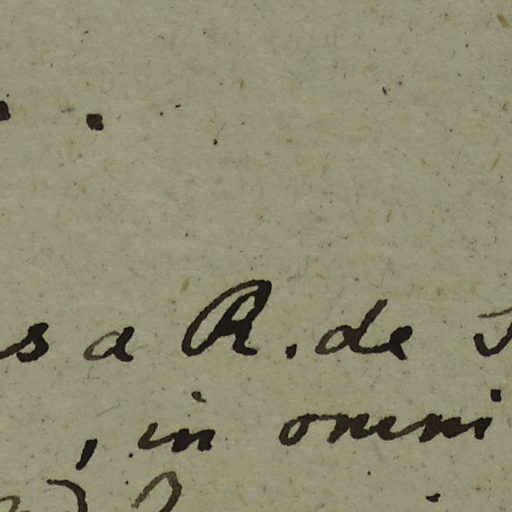 s a R. de
, in omni